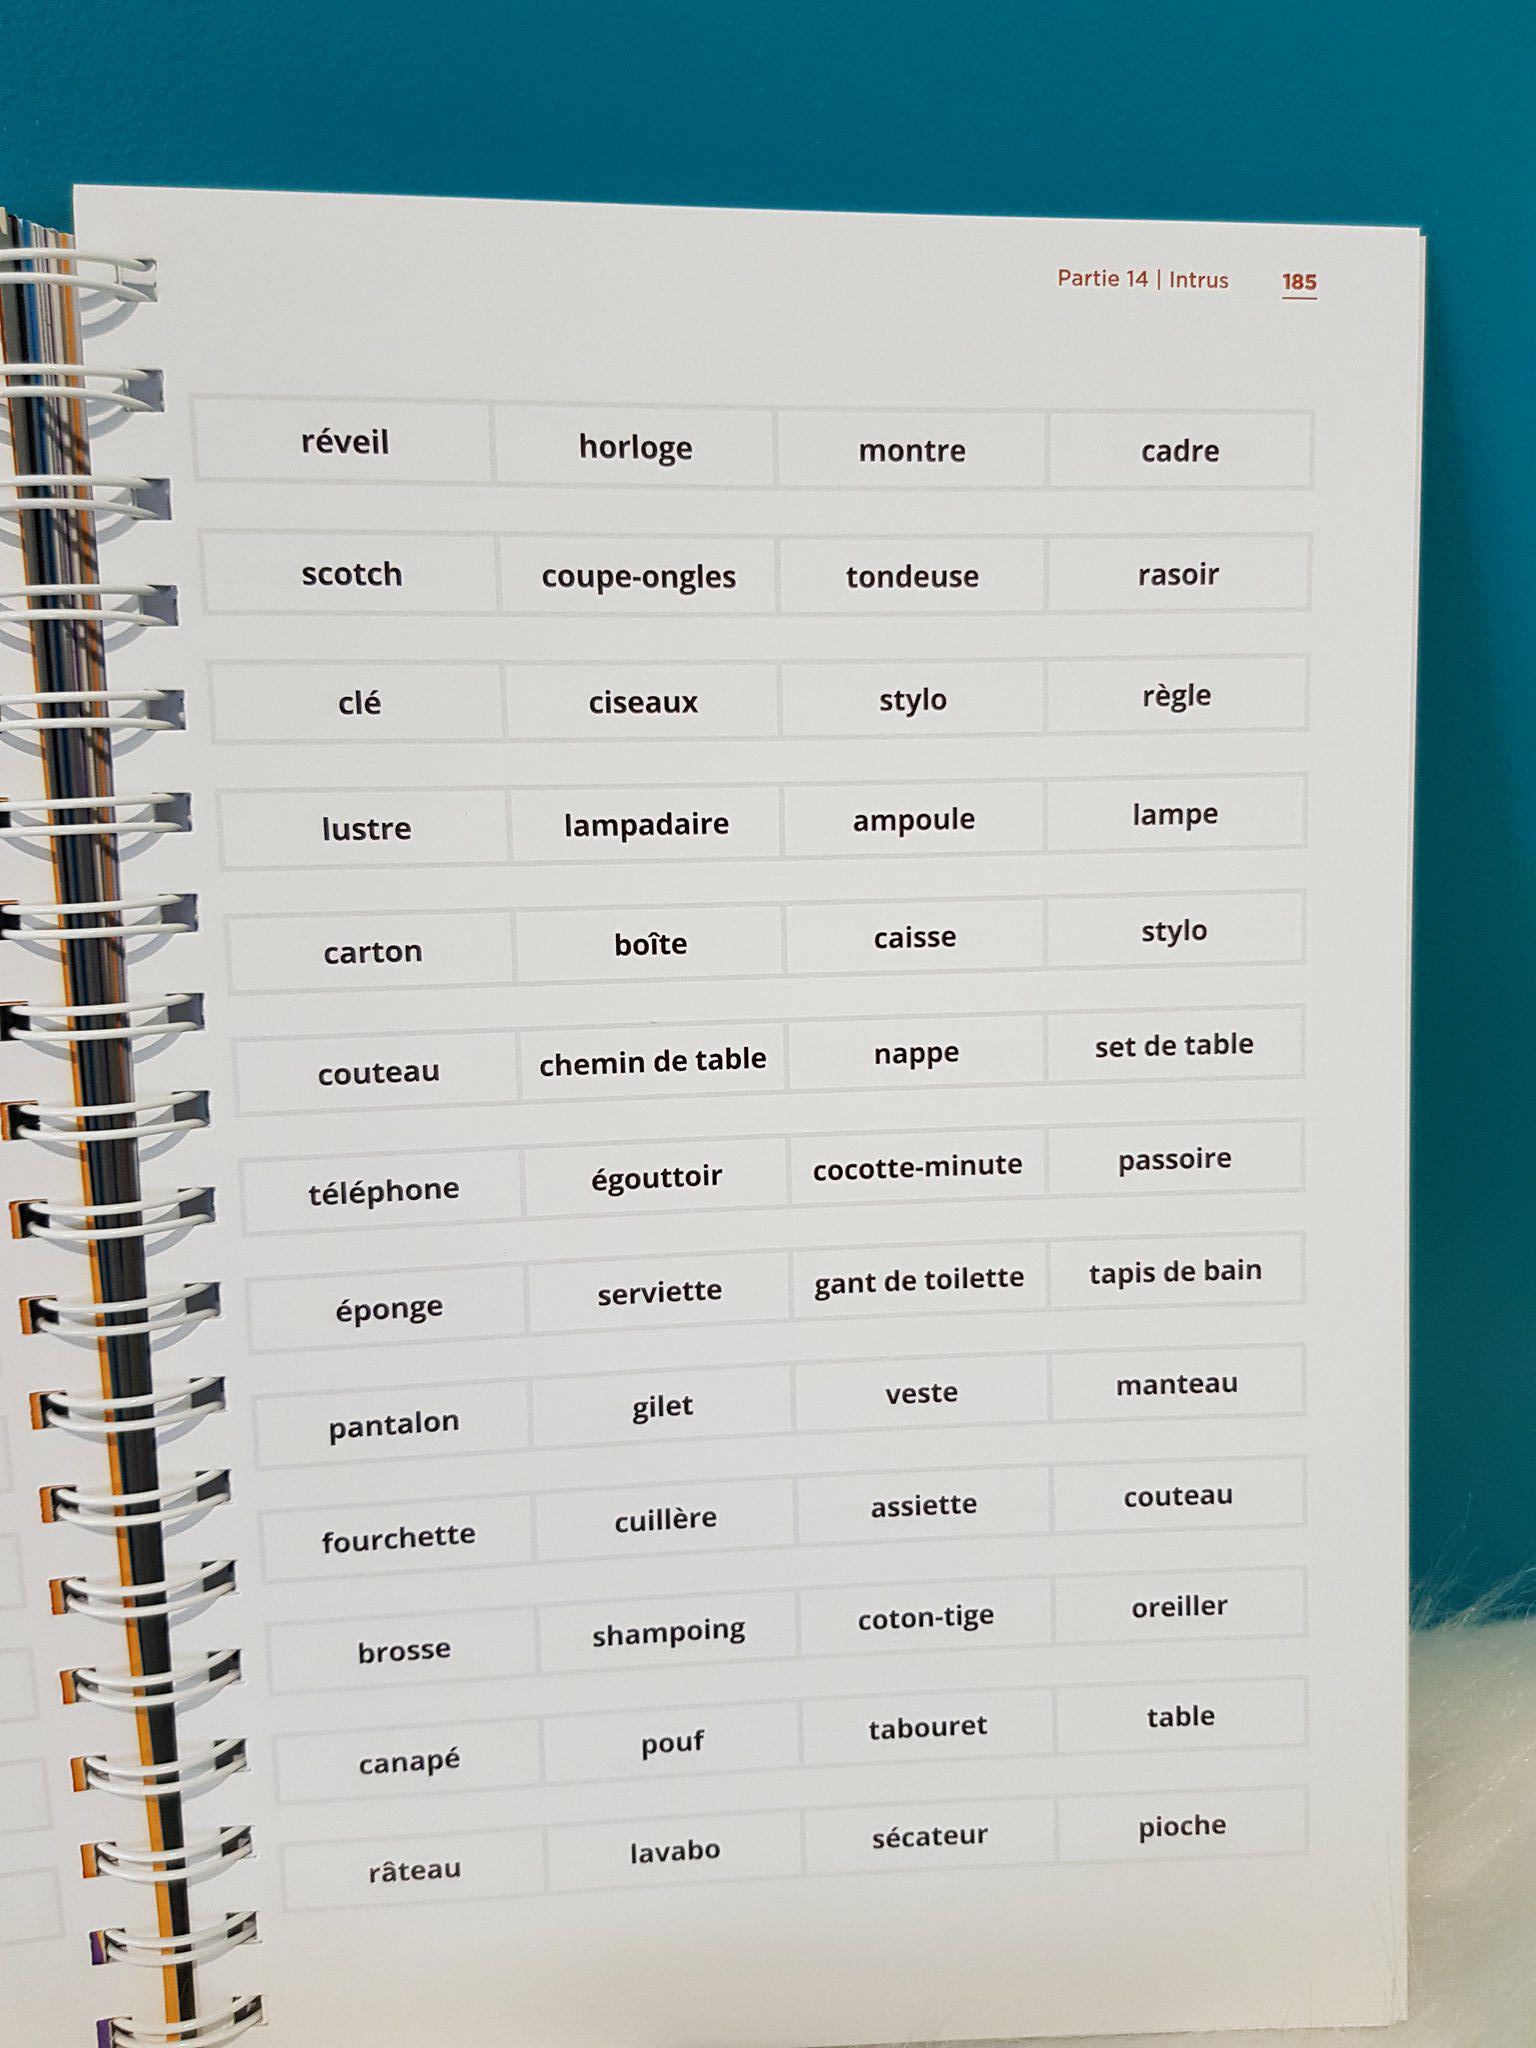 Partie 14 | Intrus 185
réveil horloge montre cadre
scotch coupe-ongles tondeuse rasoir
clé ciseaux stylo règle
lustre lampadaire ampoule lampe
carton boîte caisse stylo
couteau chemin de table nappe set de table
téléphone égouttoir cocotte-minute passoire
éponge serviette gant de toilette tapis de bain
pantalon gilet veste manteau
fourchette cuillère assiette couteau
brosse shampoing coton-tige oreiller
canapé pouf tabouret table
râteau lavabo sécateur pioche